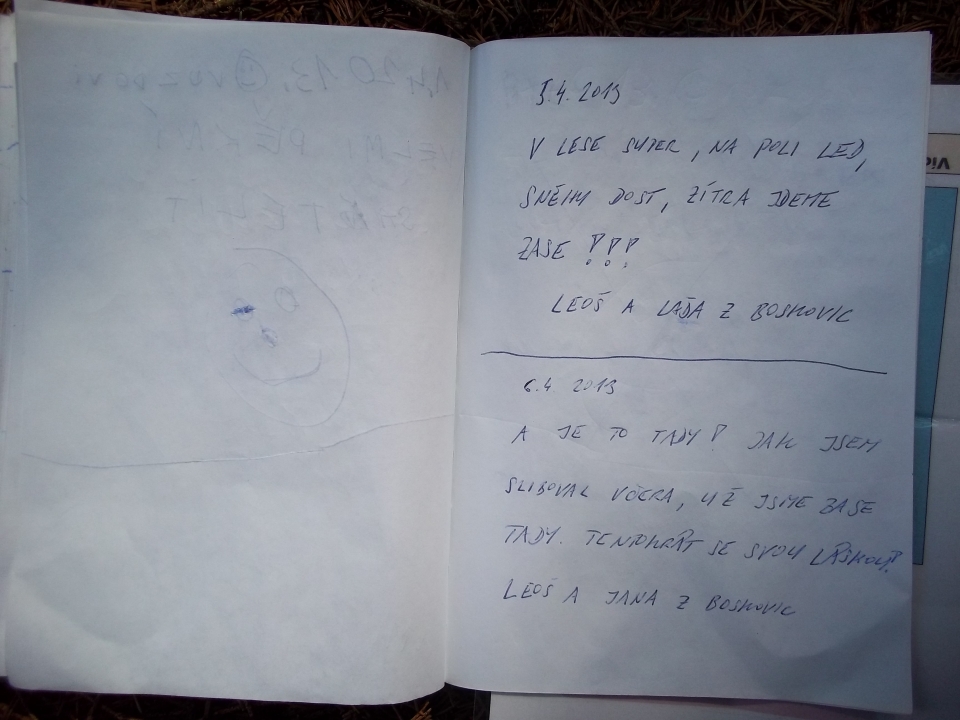 5.4. 2013
V LESE SUPER, NA POLI LED,
SNĚHU DOST, ZÍTRA JDEME
ZASE !!!
LEOŠ A LAĎA Z BOSKOVIC
6.4 2013
A JE TO TADY! JAK JSEM
SLIBOVAL VČERA, UŽ JSME ZASE
TADY. TENTOKRÁT SE SVOU LÁSKOU!
LEOŠ A JANA Z BOSKOVIC